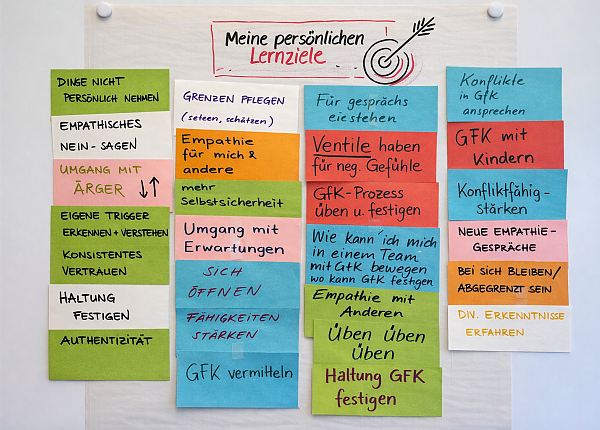 Meine persönlichen
Lernziele
DINGE NICHT
PERSÖNLICH NEHMEN
EMPATHISCHES
NEIN-SAGEN
UMGANG MIT
ÄRGER ↓↑
EIGENE TRIGGER
ERKENNEN + VERSTEHEN
KONSISTENTES
VERTRAUEN
HALTUNG
FESTIGEN
AUTHENTIZITÄT
GRENZEN PFLEGEN
(seteen, schätzen)
Empathie
für mich &
andere
mehr
Selbstsicherheit
Umgang mit
Erwartungen
SICH
ÖFFNEN
FÄHIGKEITEN
STÄRKEN
GFK vermitteln
Für gesprächs
eiestehen
Ventile haben
für neg. Gefühle
GfK-Prozess
üben u. festigen
Wie kann ich mich
in einem Team
mit GtK bewegen
wo kann GfK festigen
Empathie mit
Anderen
Üben Üben
Üben
Haltung GFK
festigen
Konflikte
in GfK
ansprechen
GFK mit
Kindern
Konfliktfähig-
Stärken
NEUE EMPATHIE-
GESPRÄCHE
BEI SICH BLEIBEN/
ABGEGRENZT SEIN
DIV. ERKENNTNISSE
ERFAHREN